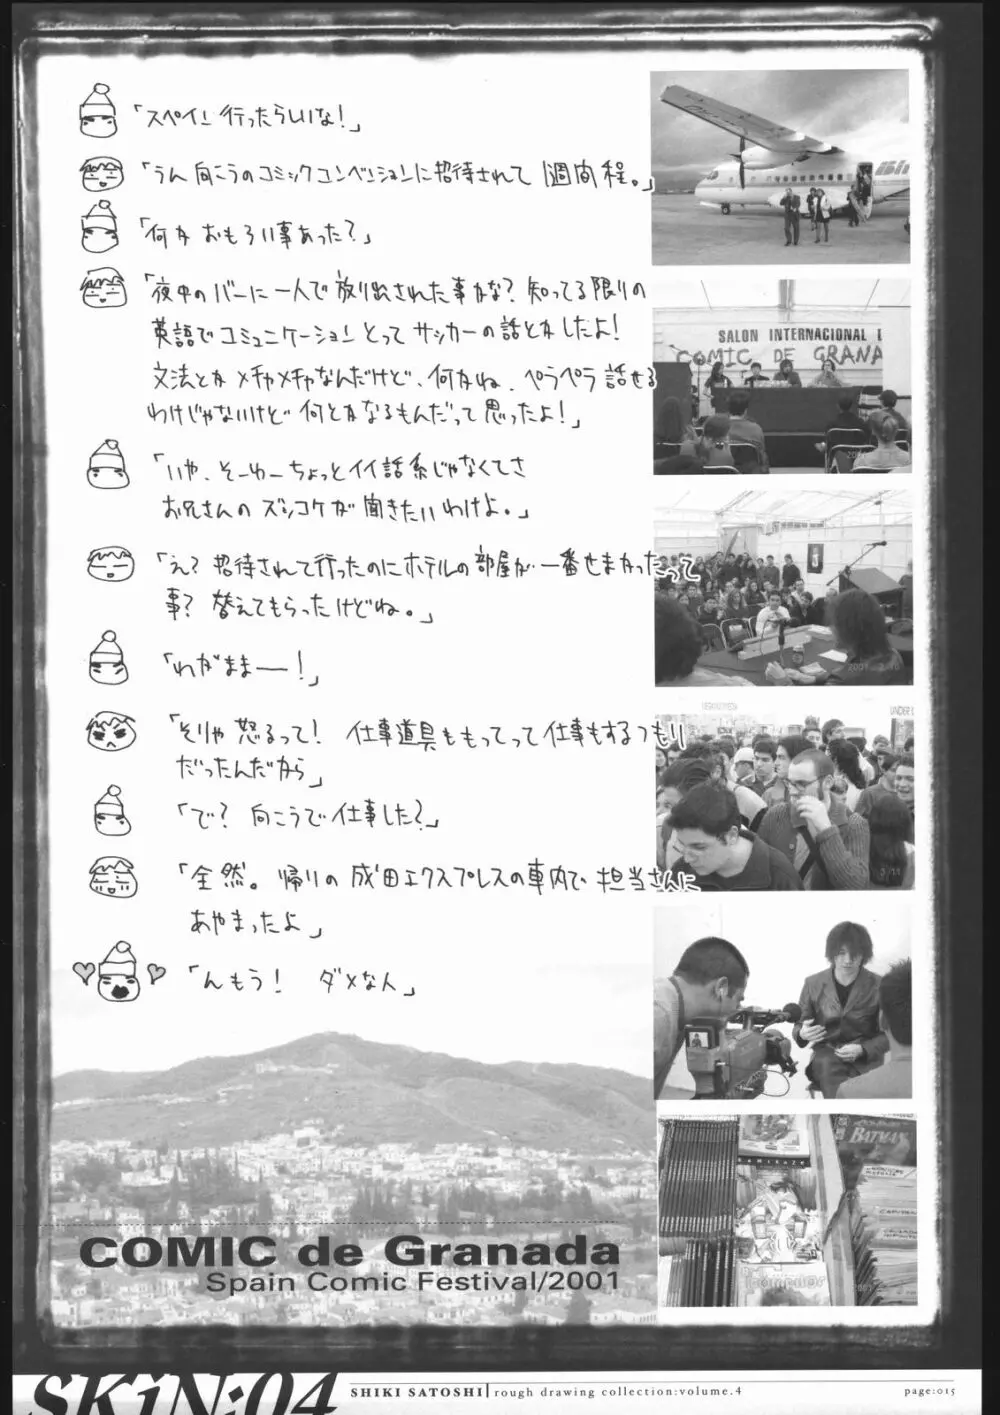 「スペイン行ったらしいな！」
「うん 向こうのコミックコンベンションに招待されて 1週間程。」
「何か おもろい事あった？」
「夜中のバーに一人で放り出された事かな？知ってる限りの
英語でコミュニケーションとってサッカーの話とかしたよ！
文法とかメチャメチャなんだけど、何かね、ペラペラ話せる
わけじゃないけど何とかなるもんだって思ったよ！」
「いや、そーゆーちょっとイイ話系じゃなくてさ
お兄さんのズッコケが聞きたいわけよ。」
「え？招待されて行ったのにホテルの部屋が一番せまかったって
事？替えてもらったけどね。」
「わがままー！」
「そりゃ怒るって！ 仕事道具ももってって仕事もするつもり
だったんだから」
「で？向こうで仕事した？」
「全然。帰りの成田エクスプレスの車内で担当さんに
あやまったよ」
「んもう！ ダメな人」
SALON INTERNACIONAL
COMIC DE GRANA
UNDER
BATMAN
KAMIKAZE
COMIC de Granada
Spain Comic Festival/2001
SKiN:04
SHIKI SATOSHI | rough drawing collection:volume.4
page:015